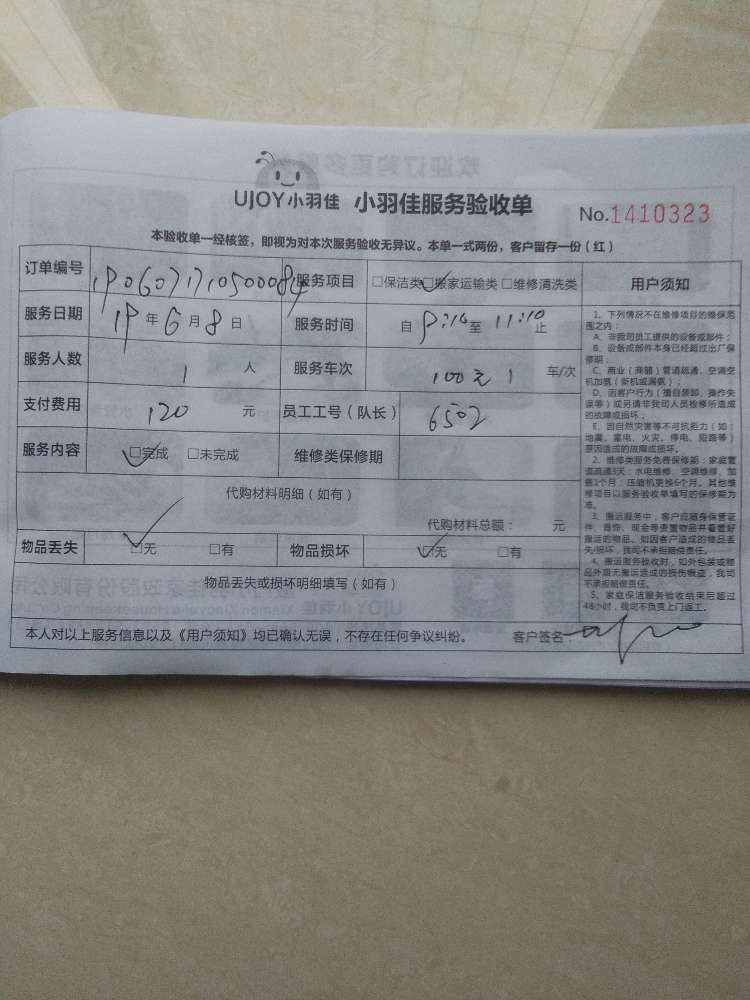 UJOY小羽佳 小羽佳服务验收单 No.1410323
本验收单一经核签，即视为对本次服务验收无异议。本单一式两份，客户留存一份（红）
订单编号 1906071710500084 服务项目 □保洁类□搬家运输类□维修清洗类
服务日期 19年6月8日 服务时间 自9:10至11:10止
服务人数 1人 服务车次 100元1 车/次
支付费用 120元 员工工号（队长） 6502
服务内容 □完成 □未完成 维修类保修期
代购材料明细（如有）
代购材料总额： 元
物品丢失 □无 □有 物品损坏 □无 □有
物品丢失或损坏明细填写（如有）
本人对以上服务信息以及《用户须知》均已确认无误，不存在任何争议纠纷。 客户签名：
用户须知
1、下列情况不在维修项目的维保范
围之内：
A、非我司员工提供的设备或部件；
B、设备或部件本身已经超过出厂保
修期；
C、商业（商铺）管道疏通、空调空
机加氨（新机或漏氨）；
D、因客户行为（擅自装卸、操作失
误等）或另请非我司人员检修所造成
的故障或损坏；
E、因自然灾害等不可抗拒力（如：
地震、雷电、火灾、停电、短路等）
原因造成的故障或损坏。
2、维修类服务免费保修期：家庭管
道疏通3天；水电维修、空调维修、加
氨1个月；压缩机更换6个月。其他维
修项目以服务验收单填写的保修期为
准。
3、搬运服务中，客户应随身保管证
件、首饰、现金等贵重物品并看管好
搬运的物品。如因客户造成的物品丢
失/损坏，我司不承担赔偿责任。
4、搬运服务验收时，如外包装或物
品外观无搬运造成的损伤痕迹，我司
不承担赔偿责任。
5、家庭保洁服务验收结束后超过
48小时，我司不负责上门返工。